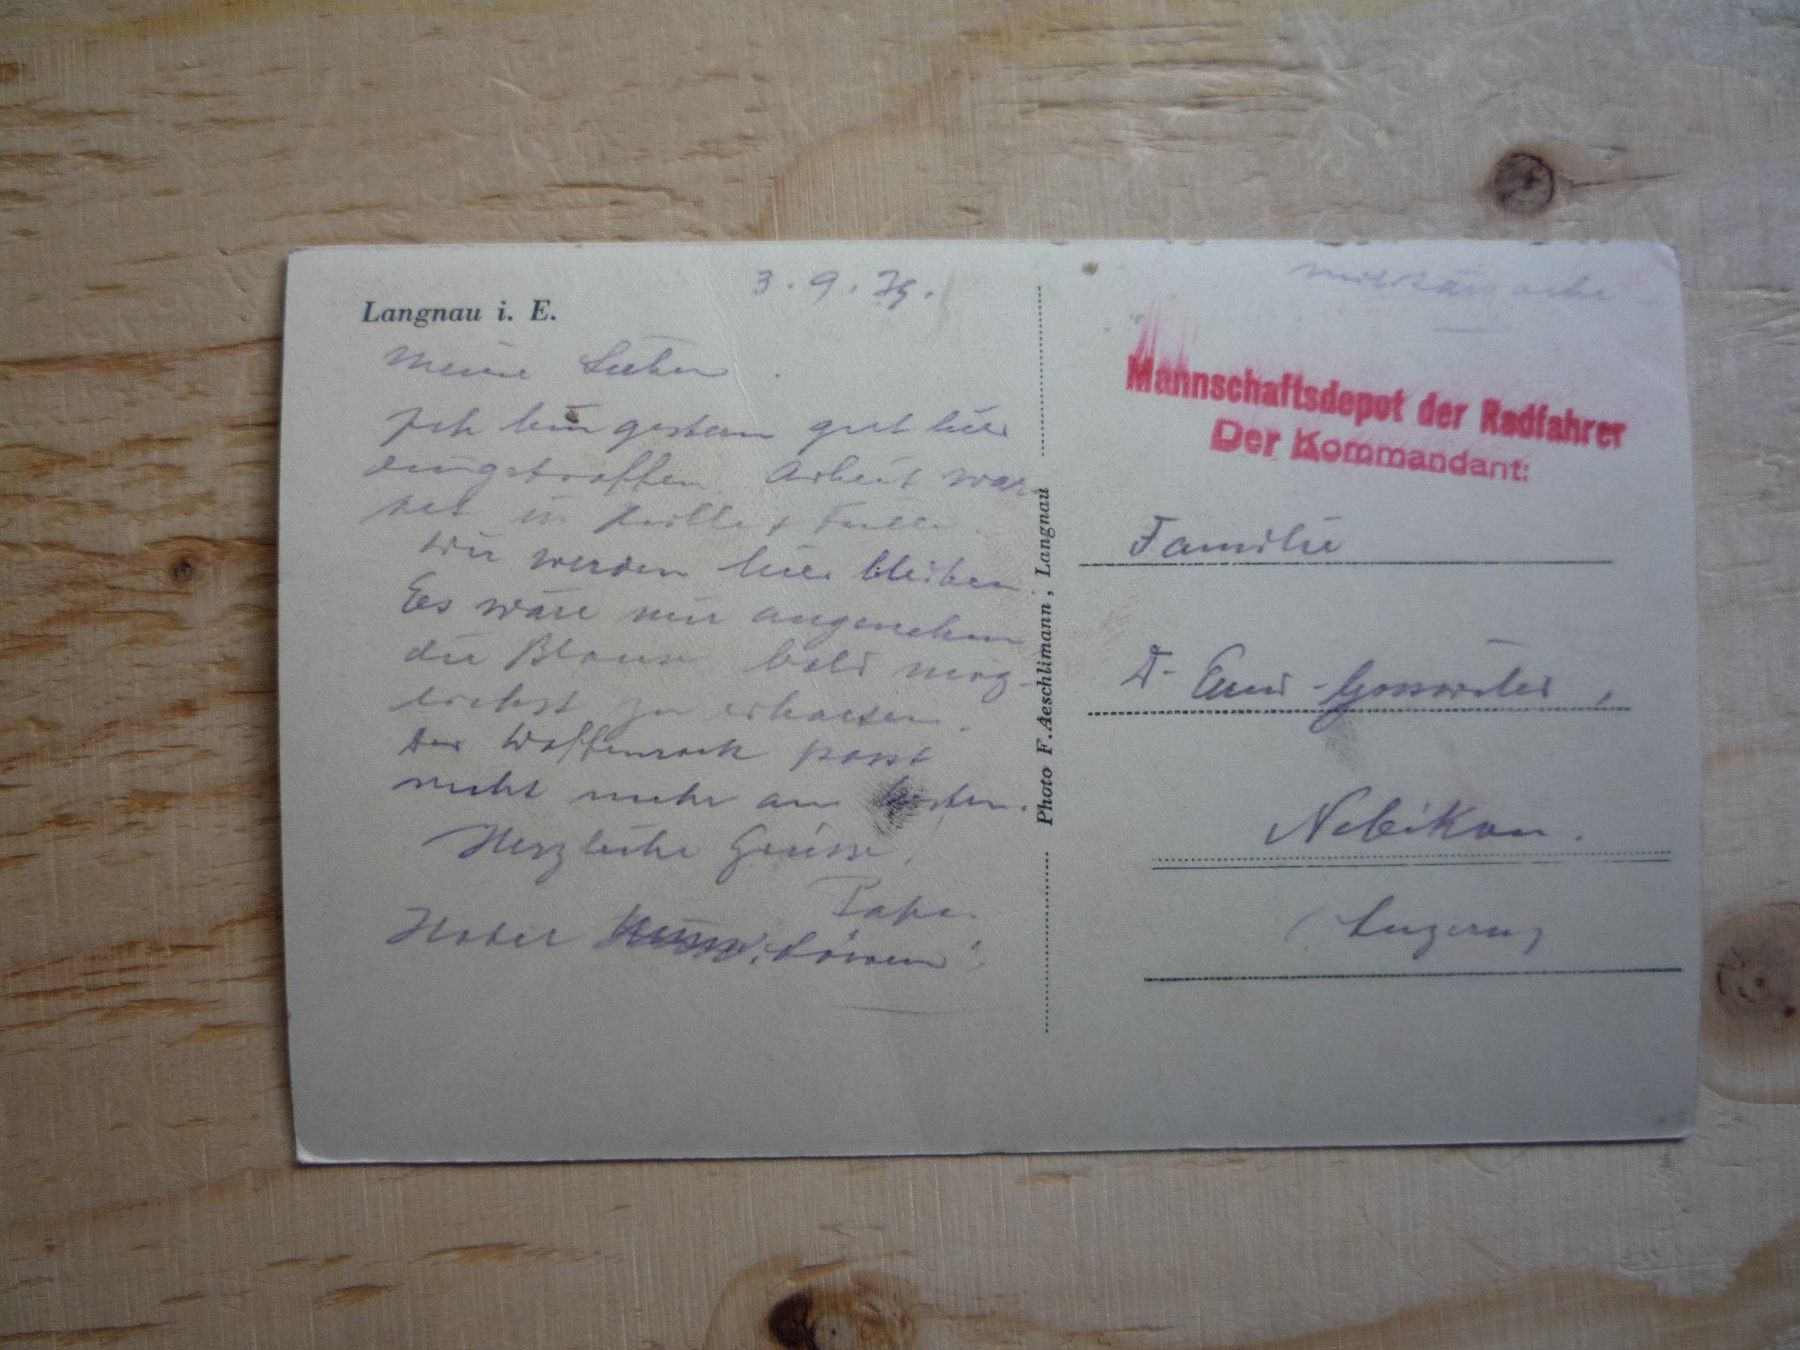 Langnau i. E.
3.9.39.
Meine Lieben.
Ich bin gestern gut hier
eingetroffen. Arbeit war-
tet in Hülle + Fülle.
Wir werden hier bleiben.
Es wäre mir angenehm
die Blouse bald mög-
lichst zu erhalten.
Der Waffenrock passt
nicht mehr am besten.
Herzliche Grüsse.
Papa.
Hotel "Löwen"
Photo F. Aeschlimann, Langnau
Militärsache
Mannschaftsdepot der Radfahrer
Der Kommandant:
Familie
Dr.
Nebikon.
(Luzern)